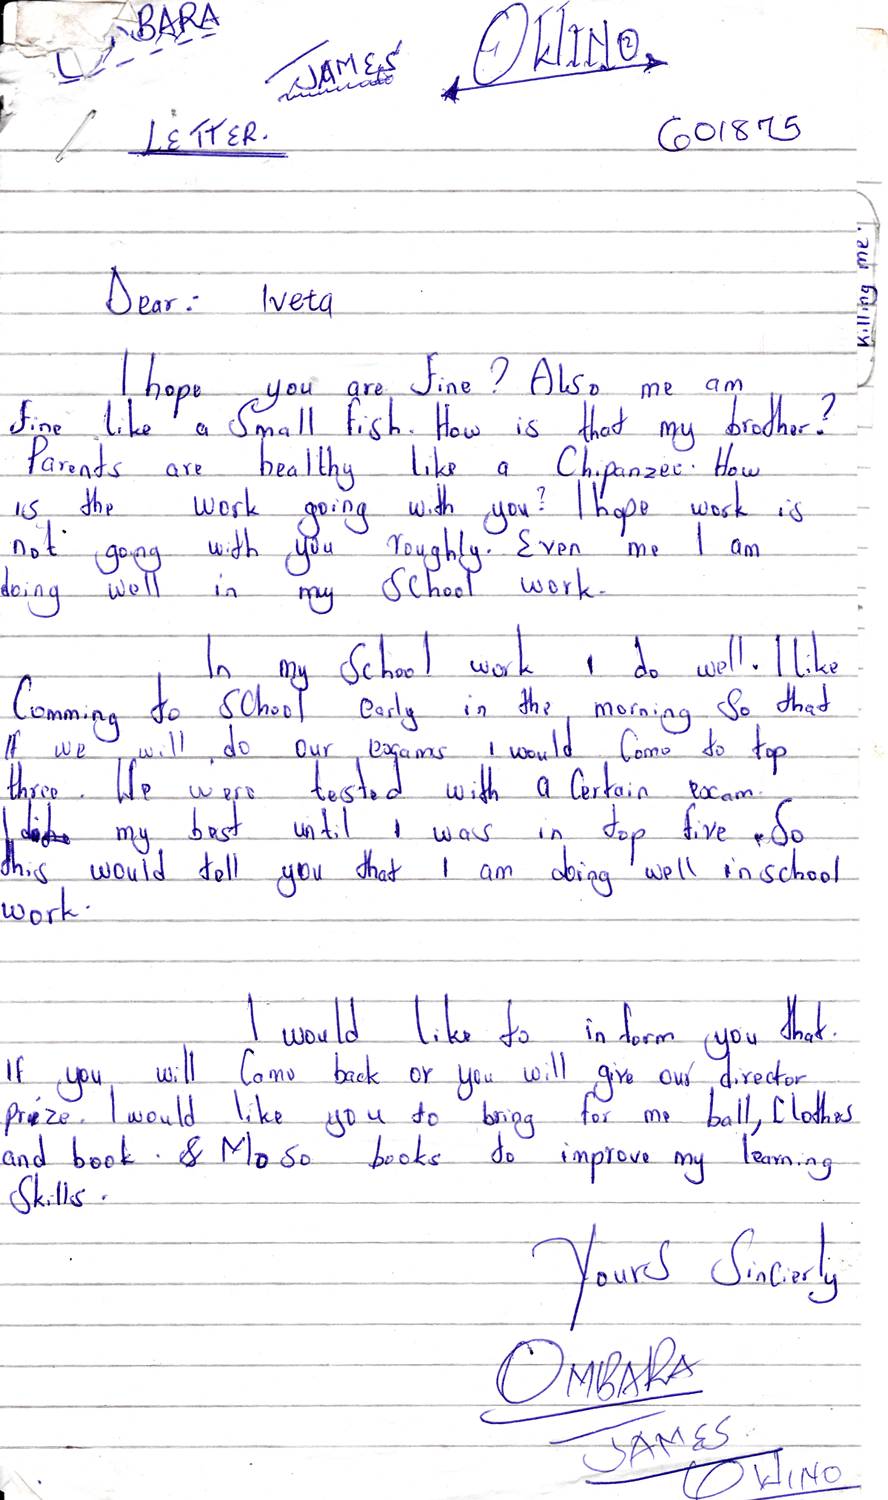 BARA
JAMES OWINO
LETTER. G01875
Killing me.
Dear:- Iveta
I hope you are fine? Also me am
fine like a small fish. How is that my brother?
Parents are healthy like a Chipanzee. How
is the work going with you? I hope work is
not going with you roughly. Even me I am
doing well in my school work.
In my school work I do well. I like
Comming to school early in the morning so that
If we will do our exams I would come to top
three. We were tested with a certain exam.
I my best until I was in top five. So
this would tell you that I am doing well in school
work.
I would like to inform you that.
If you will come back or you will give our director
prize. I would like you to bring for me ball, Clothes
and book. & books to improve my learning
Skills.
Yours Sincierly
OMBARA
JAMES
OWINO